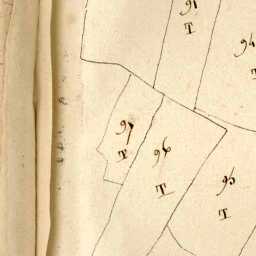 91
T
94
T
97
T
96
T
95
T